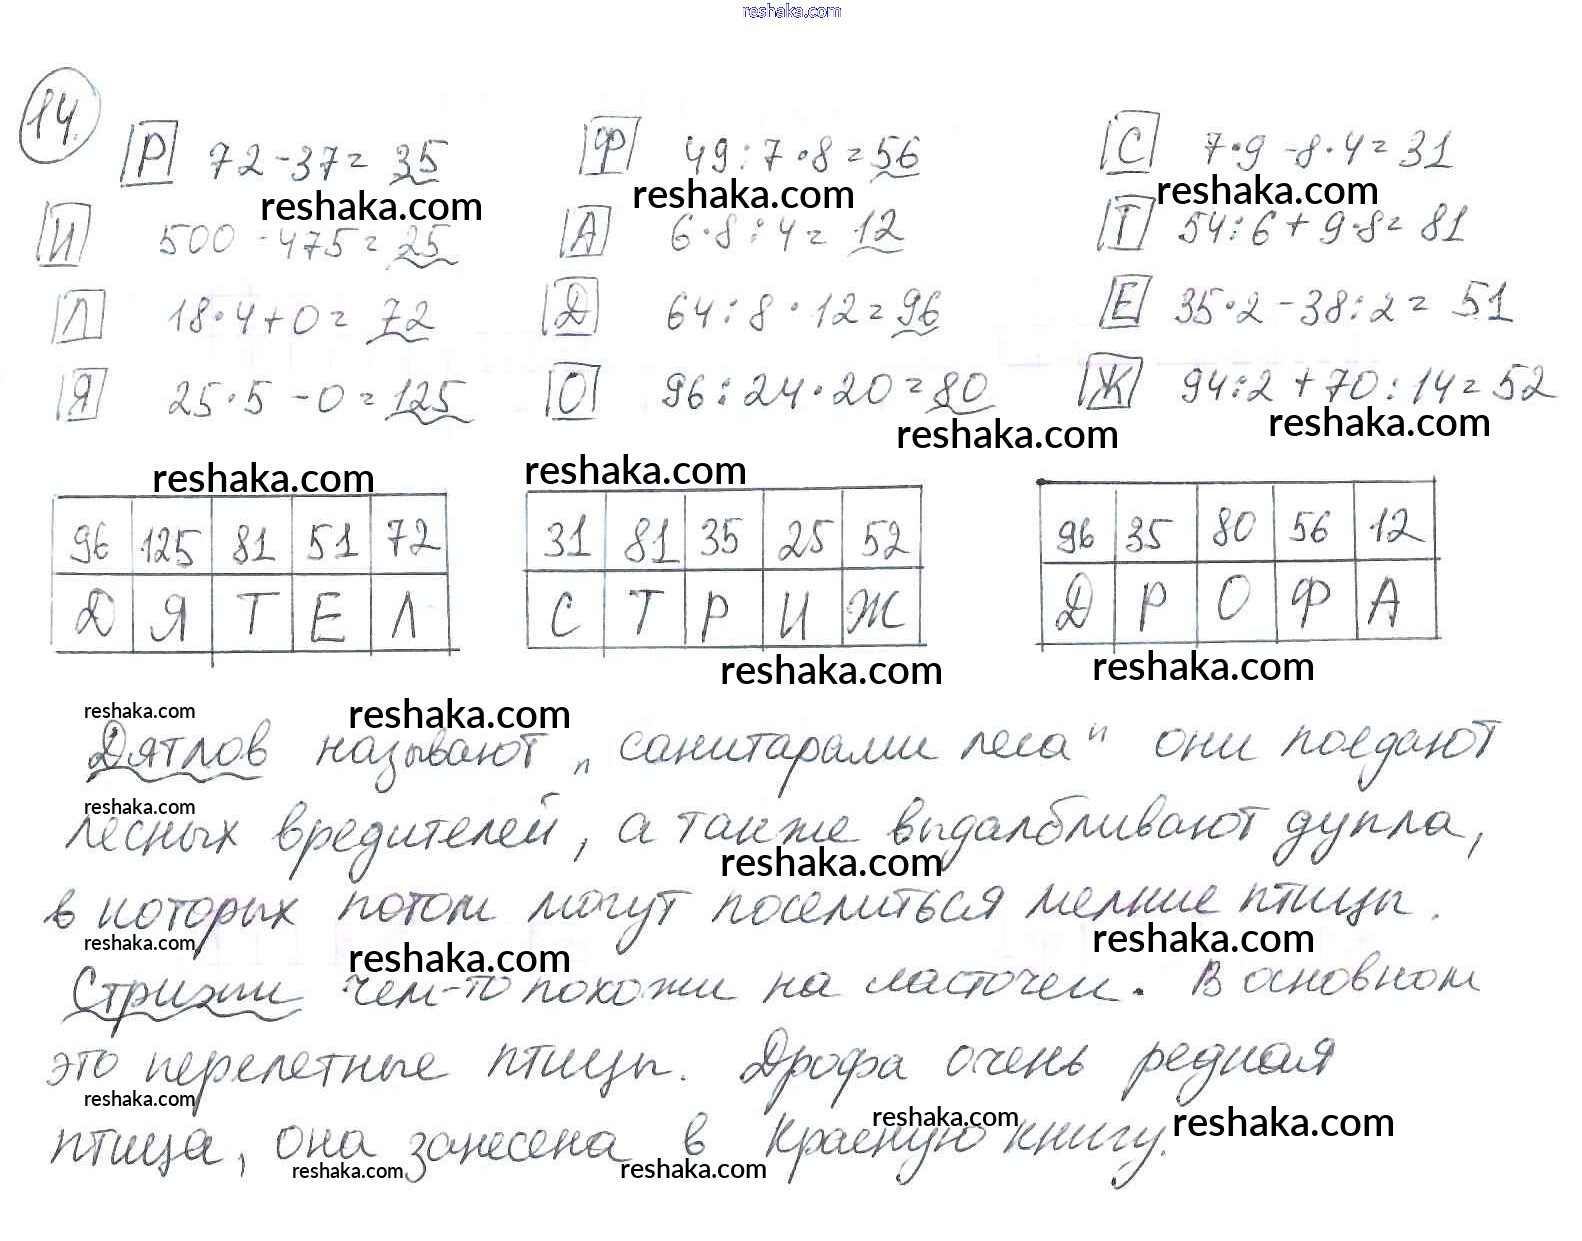 reshaka.com
14.
Р 72-37=35 Ф 49:7·8=56 С 7·9-8·4=31
reshaka.com reshaka.com reshaka.com
И 500-475=25 А 6·8:4=12 Т 54:6+9·8=81
Л 18·4+0=72 Д 64:8·12=96 Е 35·2-38:2=51
Я 25·5-0=125 О 96:24·20=80 Ж 94:2+70:14=52
reshaka.com reshaka.com
reshaka.com reshaka.com
96 125 81 51 72 31 81 35 25 52 96 35 80 56 12
Д Я Т Е Л С Т Р И Ж Д Р О Ф А
reshaka.com reshaka.com
reshaka.com reshaka.com
Дятлов называют „санитарами леса" они поедают
reshaka.com
лесных вредителей, а также выдалбливают дупла,
reshaka.com
в которых потом могут поселиться мелкие птицы.
reshaka.com reshaka.com reshaka.com
Стрижи чем-то похожи на ласточек. В основном
это перелетные птицы. Дрофа очень редкая
reshaka.com reshaka.com reshaka.com
птица, она занесена в Красную книгу.
reshaka.com reshaka.com